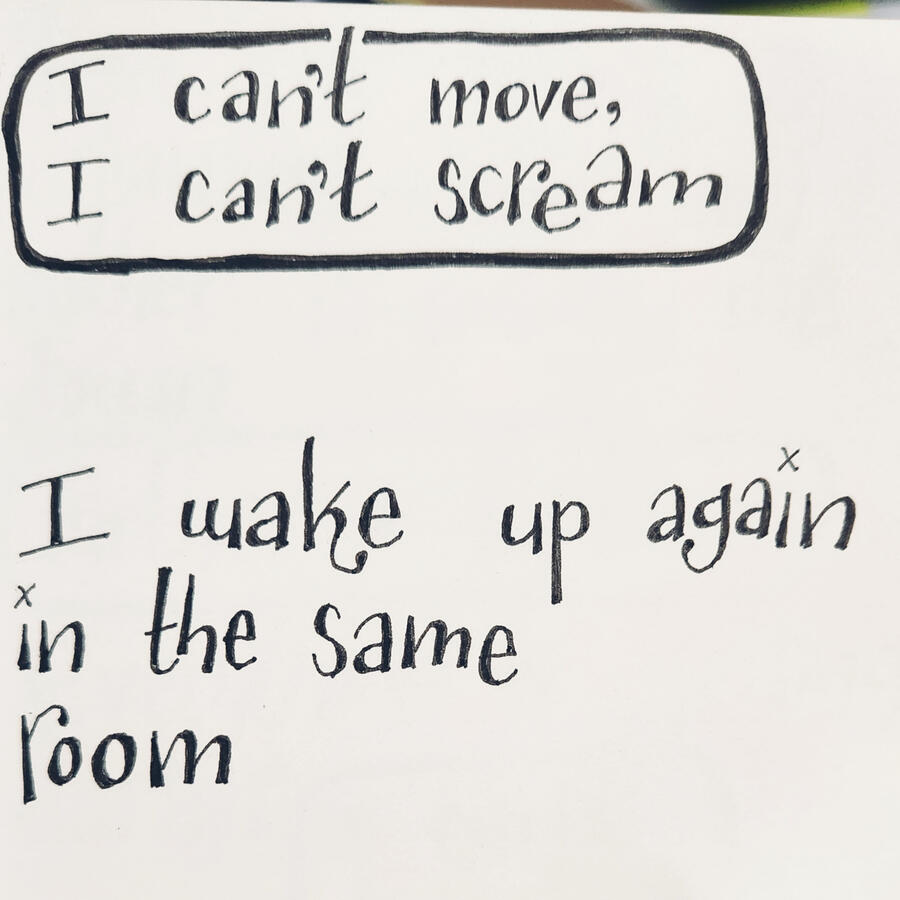 I can't move,
I can't scream
I wake up again
in the same
room